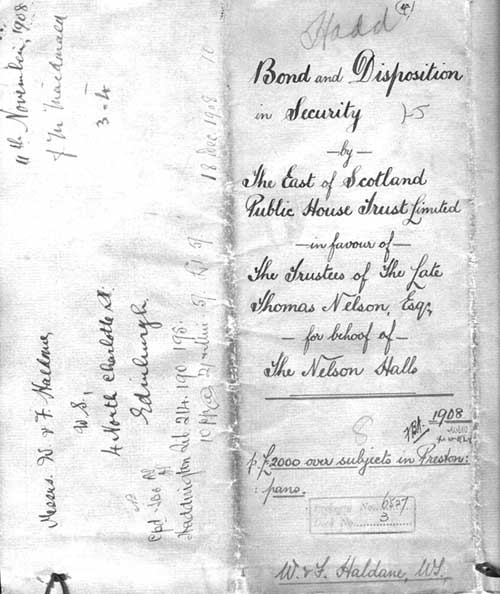 Hadd
Bond and Disposition
in Security
— by —
The East of Scotland
Public House Trust Limited
— in favour of —
The Trustees of The Late
Thomas Nelson, Esq.,
— for behoof of —
The Nelson Halls
8
1908
p. £2000 over subjects in Preston:
: pans.
No. 6527
3
W. & F. Haldane, W.S.
11th November, 1908
J M Macdonald
3-4
Messrs. W & F. Haldane,
W.S.,
4 North Charlotte St.
Edinburgh
18 Dec 1908
Haddington